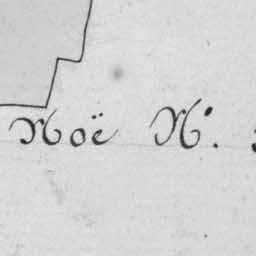 Noë N°.